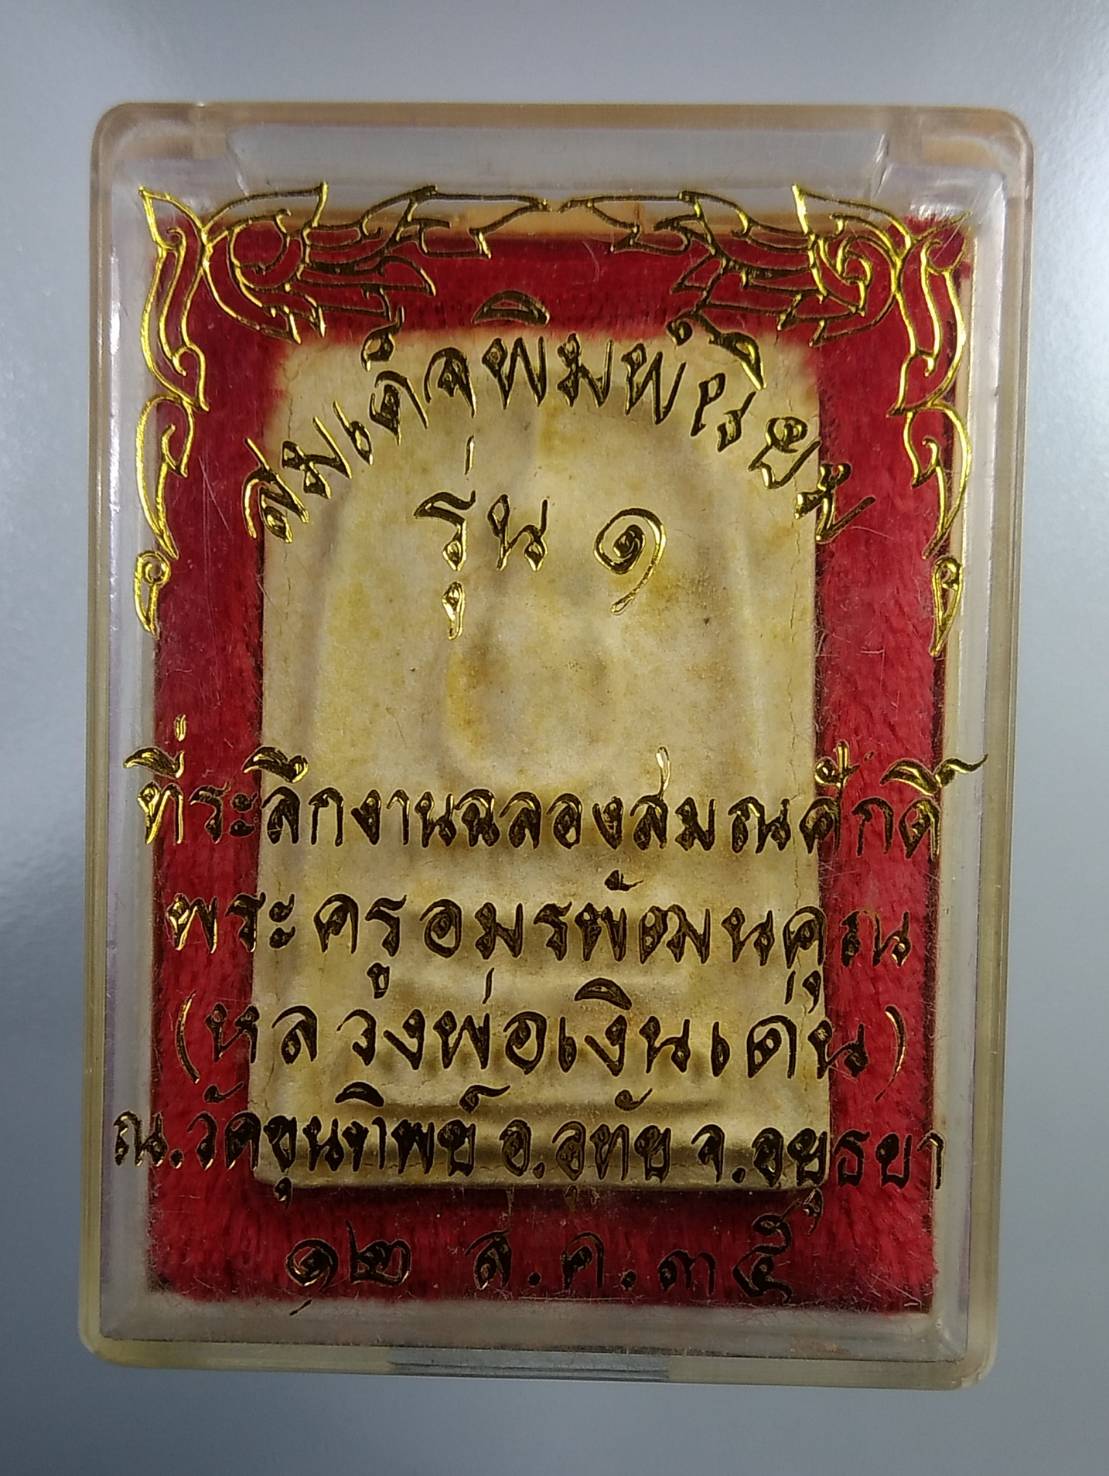 สมเด็จพิมพ์นิยม
รุ่น ๑
ที่ระลึกงานฉลองสมณศักดิ์
พระครูอมรพัฒนคุณ
(หลวงพ่อเงินเด่น)
ณ.วัดขุนทิพย์ อ.อุทัย จ.อยุธยา
๑๒ ส.ค.๓๕